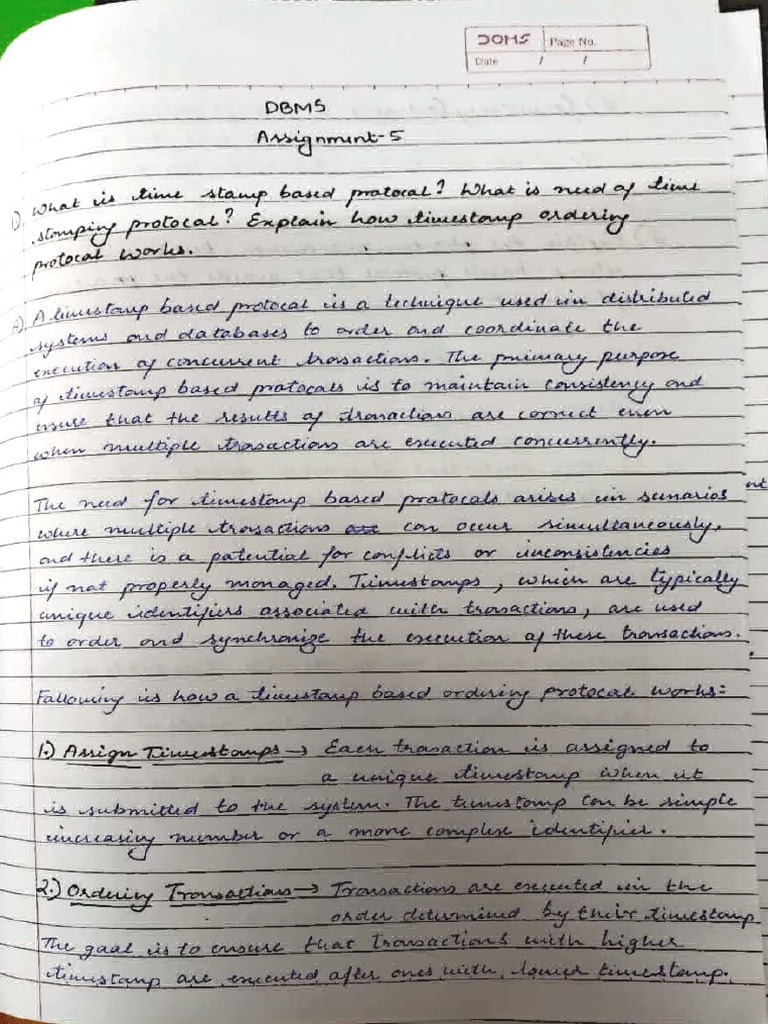 DOMS Page No.
Date / /
DBMS
Assignment-5
1) What is time stamp based protocal? What is need of time
stomping protocal? Explain how timestamp ordering
protocal works.
A) A timestamp based protocal is a technique used in distributed
systems and databases to order and coordinate the
execution of concurrent transactions. The primary purpose
of timestamp based protocals is to maintain consistency and
ensure that the results of transactions are correct even
when multiple trasactions are executed concurrently.
The need for timestamp based protocals arises in scenarios
where multiple trasactions can occur simultaneously,
and there is a potential for conflicts or inconsistencies
if not properly managed. Timestamps, which are typically
unique identifiers associated with transactions, are used
to order and synchronize the execution of these transactions.
Following is how a timestamp based ordering protocal works:
1.) Assign Timestamps → Each transaction is assigned to
a unique timestamp when it
is submitted to the system. The timestamp can be simple
increasing number or a more complex identifier.
2.) Ordering Transactions → Transactions are executed in the
order determined by their timestamp
The goal is to ensure that transactions with higher
timestamp are executed after ones with lower timestamp.